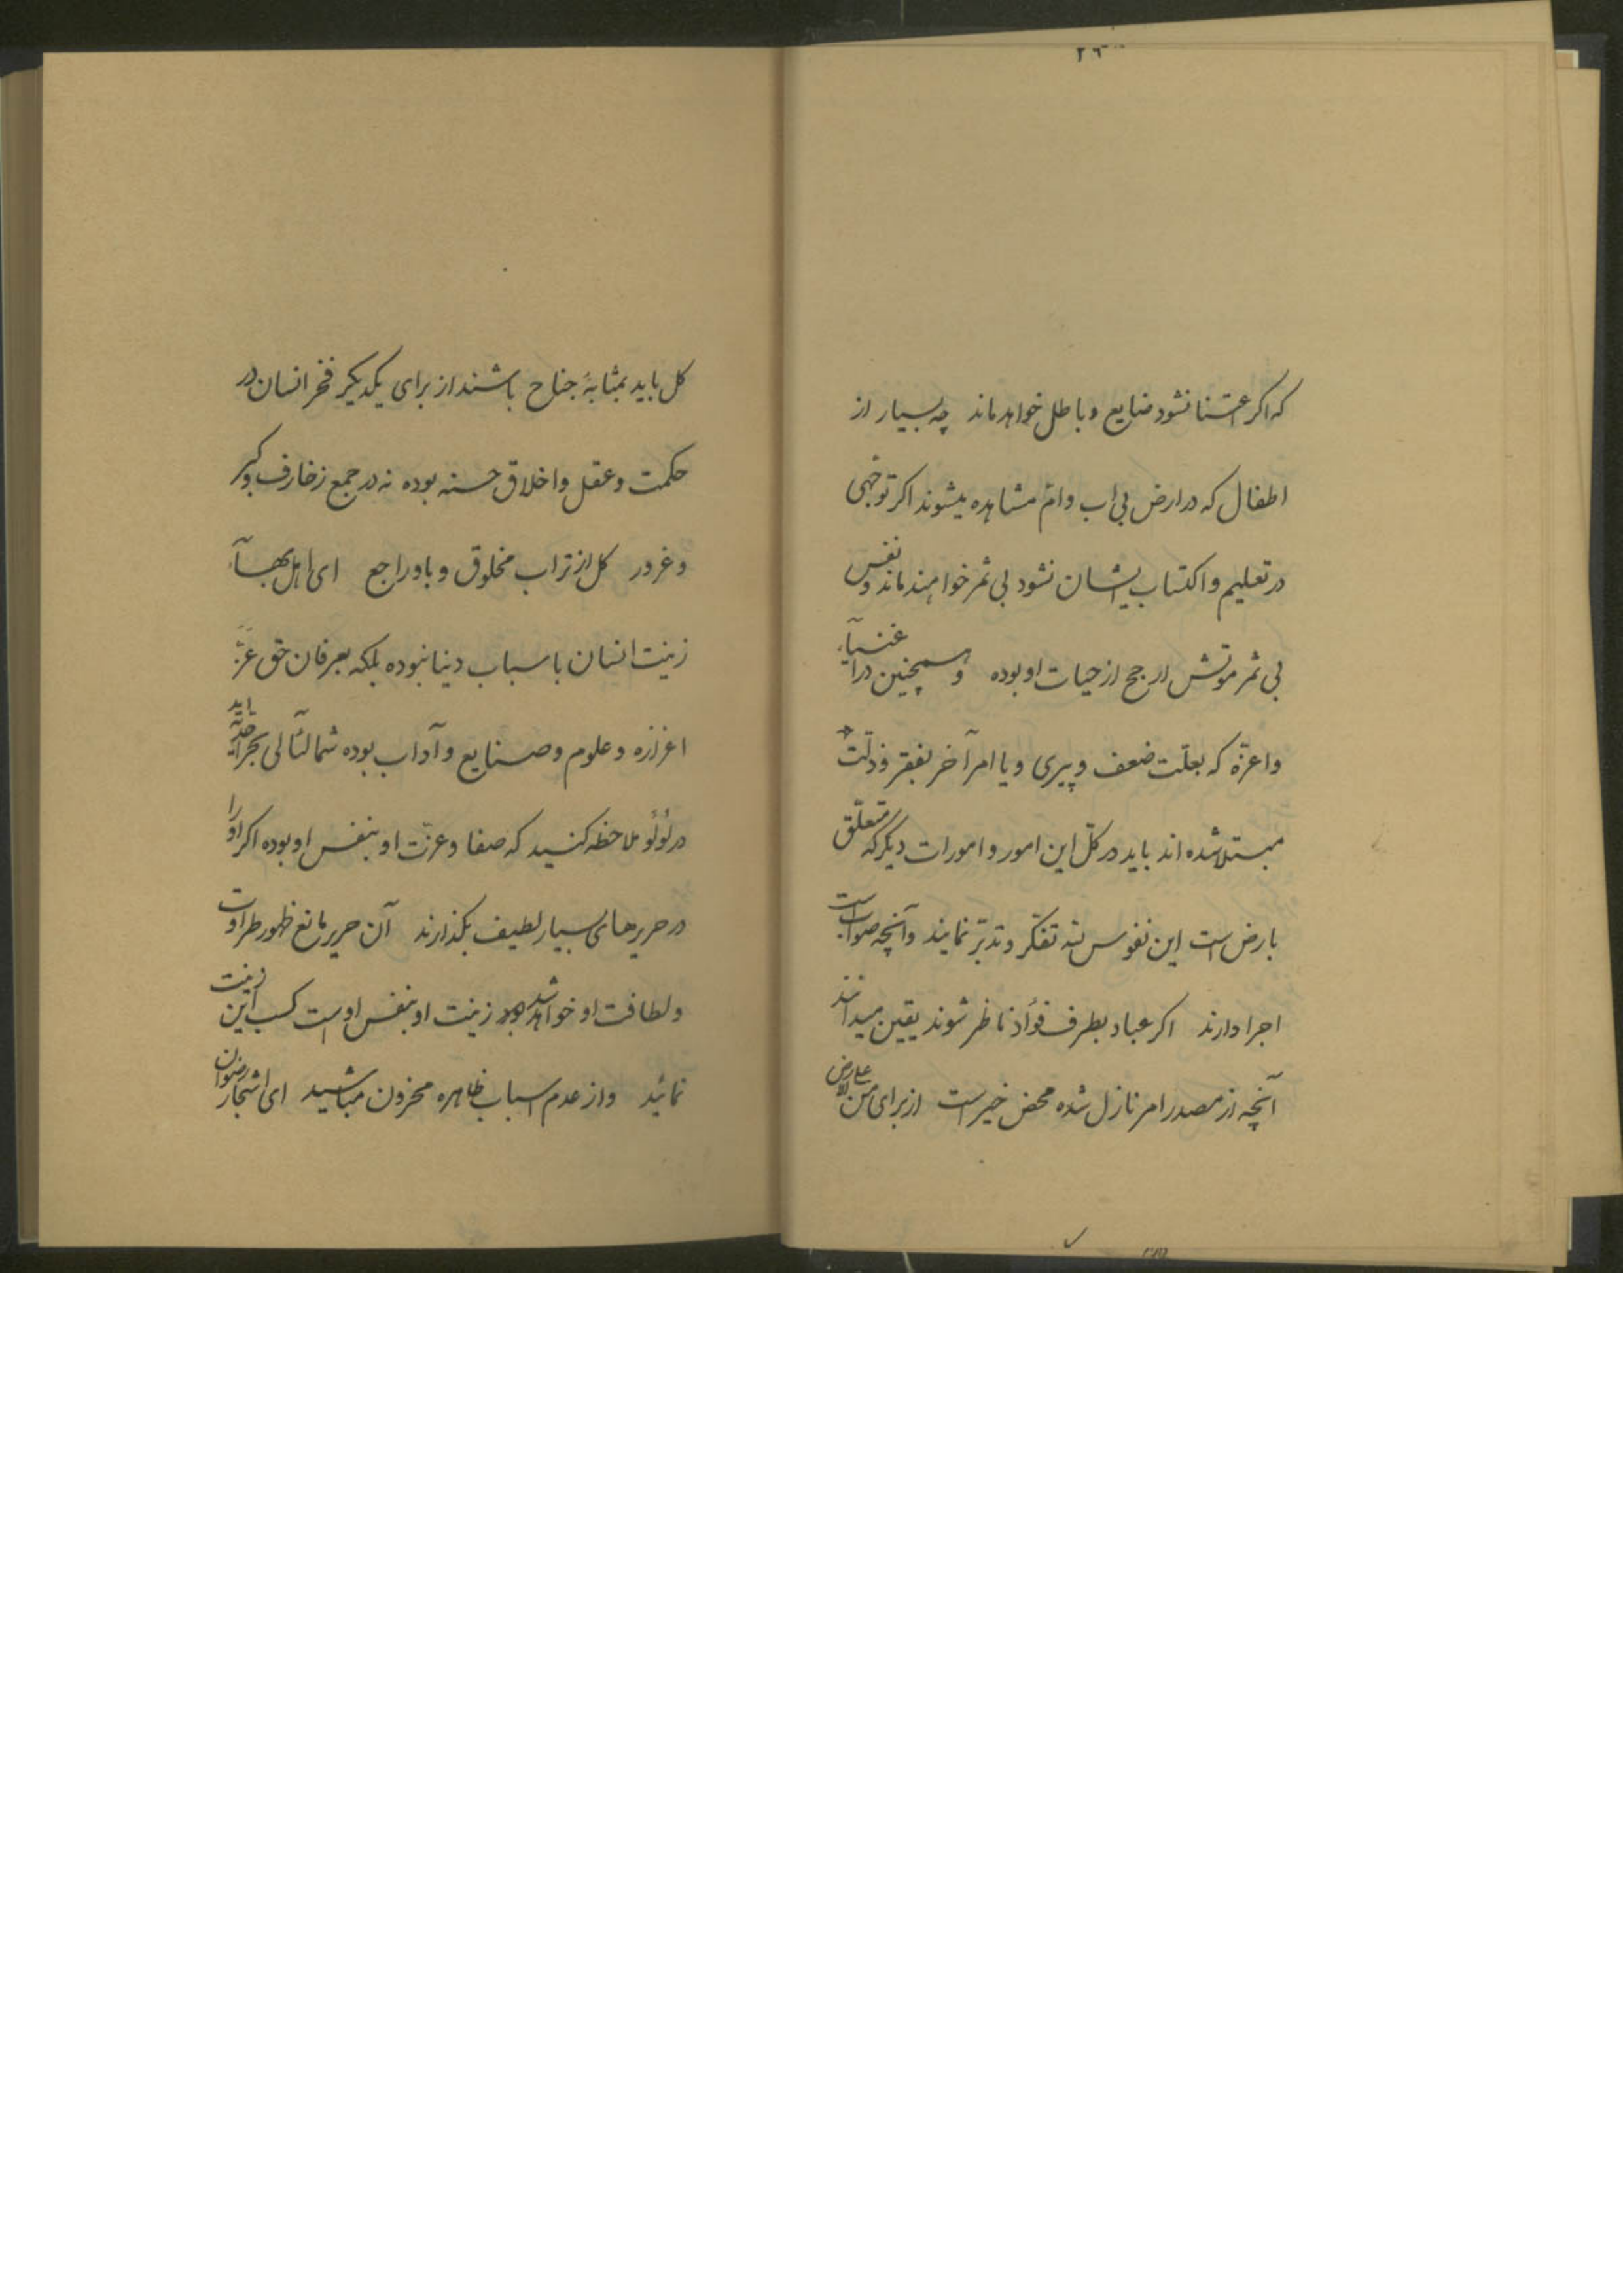 ٢٦
که اکر اعتنا نشود ضایع و باطل خواهد ماند چه بسیار از
اطفال که در ارض بی اب وامّ مشاهده میشوند اکر توجّهی
در تعلیم و اکتساب ایشان نشود بی ثمر خواهند ماند و نفس
بی ثمر موتش ارجح از حیات او بوده و همچنین در اغنیآء
واعزّه که بعلّت ضعف و پیری و یا امر آخر بفقر و ذلّت
مبتلا شده اند باید در کلّ این امور و امورات دیکر که متعلّق
بارض است این نفوس لله تفکّر و تدبّر نمایند وآنچه صواب است
اجرا دارند اکر عباد بطرف فؤاد ناظر شوند یقین میدانند
آنچه از مصدر امر نازل شده محض خیر است از برای من علی الارض
کل باید بمثابهٔ جناح باشند از برای یکدیکر فخر انسان در
حکمت و عقل و اخلاق حسنه بوده نه در جمع زخارف و کبر
و غرور کل از تراب مخلوق و باو راجع ای اهل بهآء
زینت انسان باسباب دنیا نبوده بلکه بعرفان حق عزّ
اعزازه و علوم و صنایع و آداب بوده شما لئآلی بحر احدیّه اید
در لؤلؤ ملاحظه کنید که صفا و عزّت او بنفس او بوده اکر او را
در حریرهای بسیار لطیف بکذارند آن حریر مانع ظهور طراوت
و لطافت او خواهد شد زینت او بنفس اوست کسب این زینت
نمائید و از عدم اسباب ظاهره محزون مباشید ای اشجار رضوان